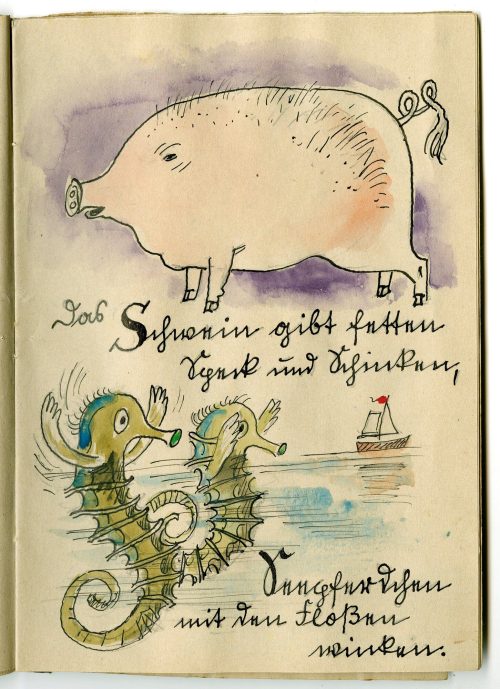 Das Schwein gibt fetten
Speck und Schinken,
Seepferdchen
mit den Floßen
winken.